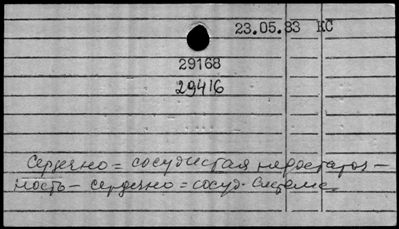 23.05.83 КС
29168
29416
Сердечно = сосудистая недостаточ-
ность - сердечно = сосуд. система.